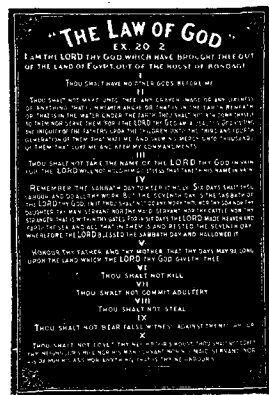 "THE LAW OF GOD"
EX. 20 2
I AM THE LORD THY GOD, WHICH HAVE BROUGHT THEE OUT
OF THE LAND OF EGYPT, OUT OF THE HOUSE OF BONDAGE
THOU SHALT HAVE NO OTHER GODS BEFORE ME
II
THOU SHALT NOT MAKE UNTO THEE ANY GRAVEN IMAGE OR ANY LIKENESS
OF ANYTHING THAT IS IN HEAVEN ABOVE OR THAT IS IN THE EARTH BENEATH
OR THAT IS IN THE WATER UNDER THE EARTH THOU SHALT NOT BOW DOWN THYSELF
TO THEM NOR SERVE THEM FOR I THE LORD THY GOD AM A JEALOUS GOD VISITING
THE INIQUITY OF THE FATHERS UPON THE CHILDREN UNTO THE THIRD AND FOURTH
GENERATION OF THEM THAT HATE ME AND SHEWING MERCY UNTO THOUSANDS
OF THEM THAT LOVE ME AND KEEP MY COMMANDMENTS
III
THOU SHALT NOT TAKE THE NAME OF THE LORD THY GOD IN VAIN
FOR THE LORD WILL NOT HOLD HIM GUILTLESS THAT TAKETH HIS NAME IN VAIN
IV
REMEMBER THE SABBATH DAY TO KEEP IT HOLY SIX DAYS SHALT THOU
LABOUR AND DO ALL THY WORK BUT THE SEVENTH DAY IS THE SABBATH OF
THE LORD THY GOD IN IT THOU SHALT NOT DO ANY WORK THOU NOR THY SON NOR THY
DAUGHTER THY MAN SERVANT NOR THY MAID SERVANT NOR THY CATTLE NOR THY
STRANGER THAT IS WITHIN THY GATES FOR IN SIX DAYS THE LORD MADE HEAVEN AND
EARTH THE SEA AND ALL THAT IN THEM IS AND RESTED THE SEVENTH DAY
WHEREFORE THE LORD BLESSED THE SABBATH DAY AND HALLOWED IT
V
HONOUR THY FATHER AND THY MOTHER THAT THY DAYS MAY BE LONG
UPON THE LAND WHICH THE LORD THY GOD GIVETH THEE
VI
THOU SHALT NOT KILL
VII
THOU SHALT NOT COMMIT ADULTERY
VIII
THOU SHALT NOT STEAL
IX
THOU SHALT NOT BEAR FALSE WITNESS AGAINST THY NEIGHBOUR
X
THOU SHALT NOT COVET THY NEIGHBOUR'S HOUSE THOU SHALT NOT COVET
THY NEIGHBOUR'S WIFE NOR HIS MAN SERVANT NOR HIS MAID SERVANT NOR
HIS OX NOR HIS ASS NOR ANYTHING THAT IS THY NEIGHBOURS